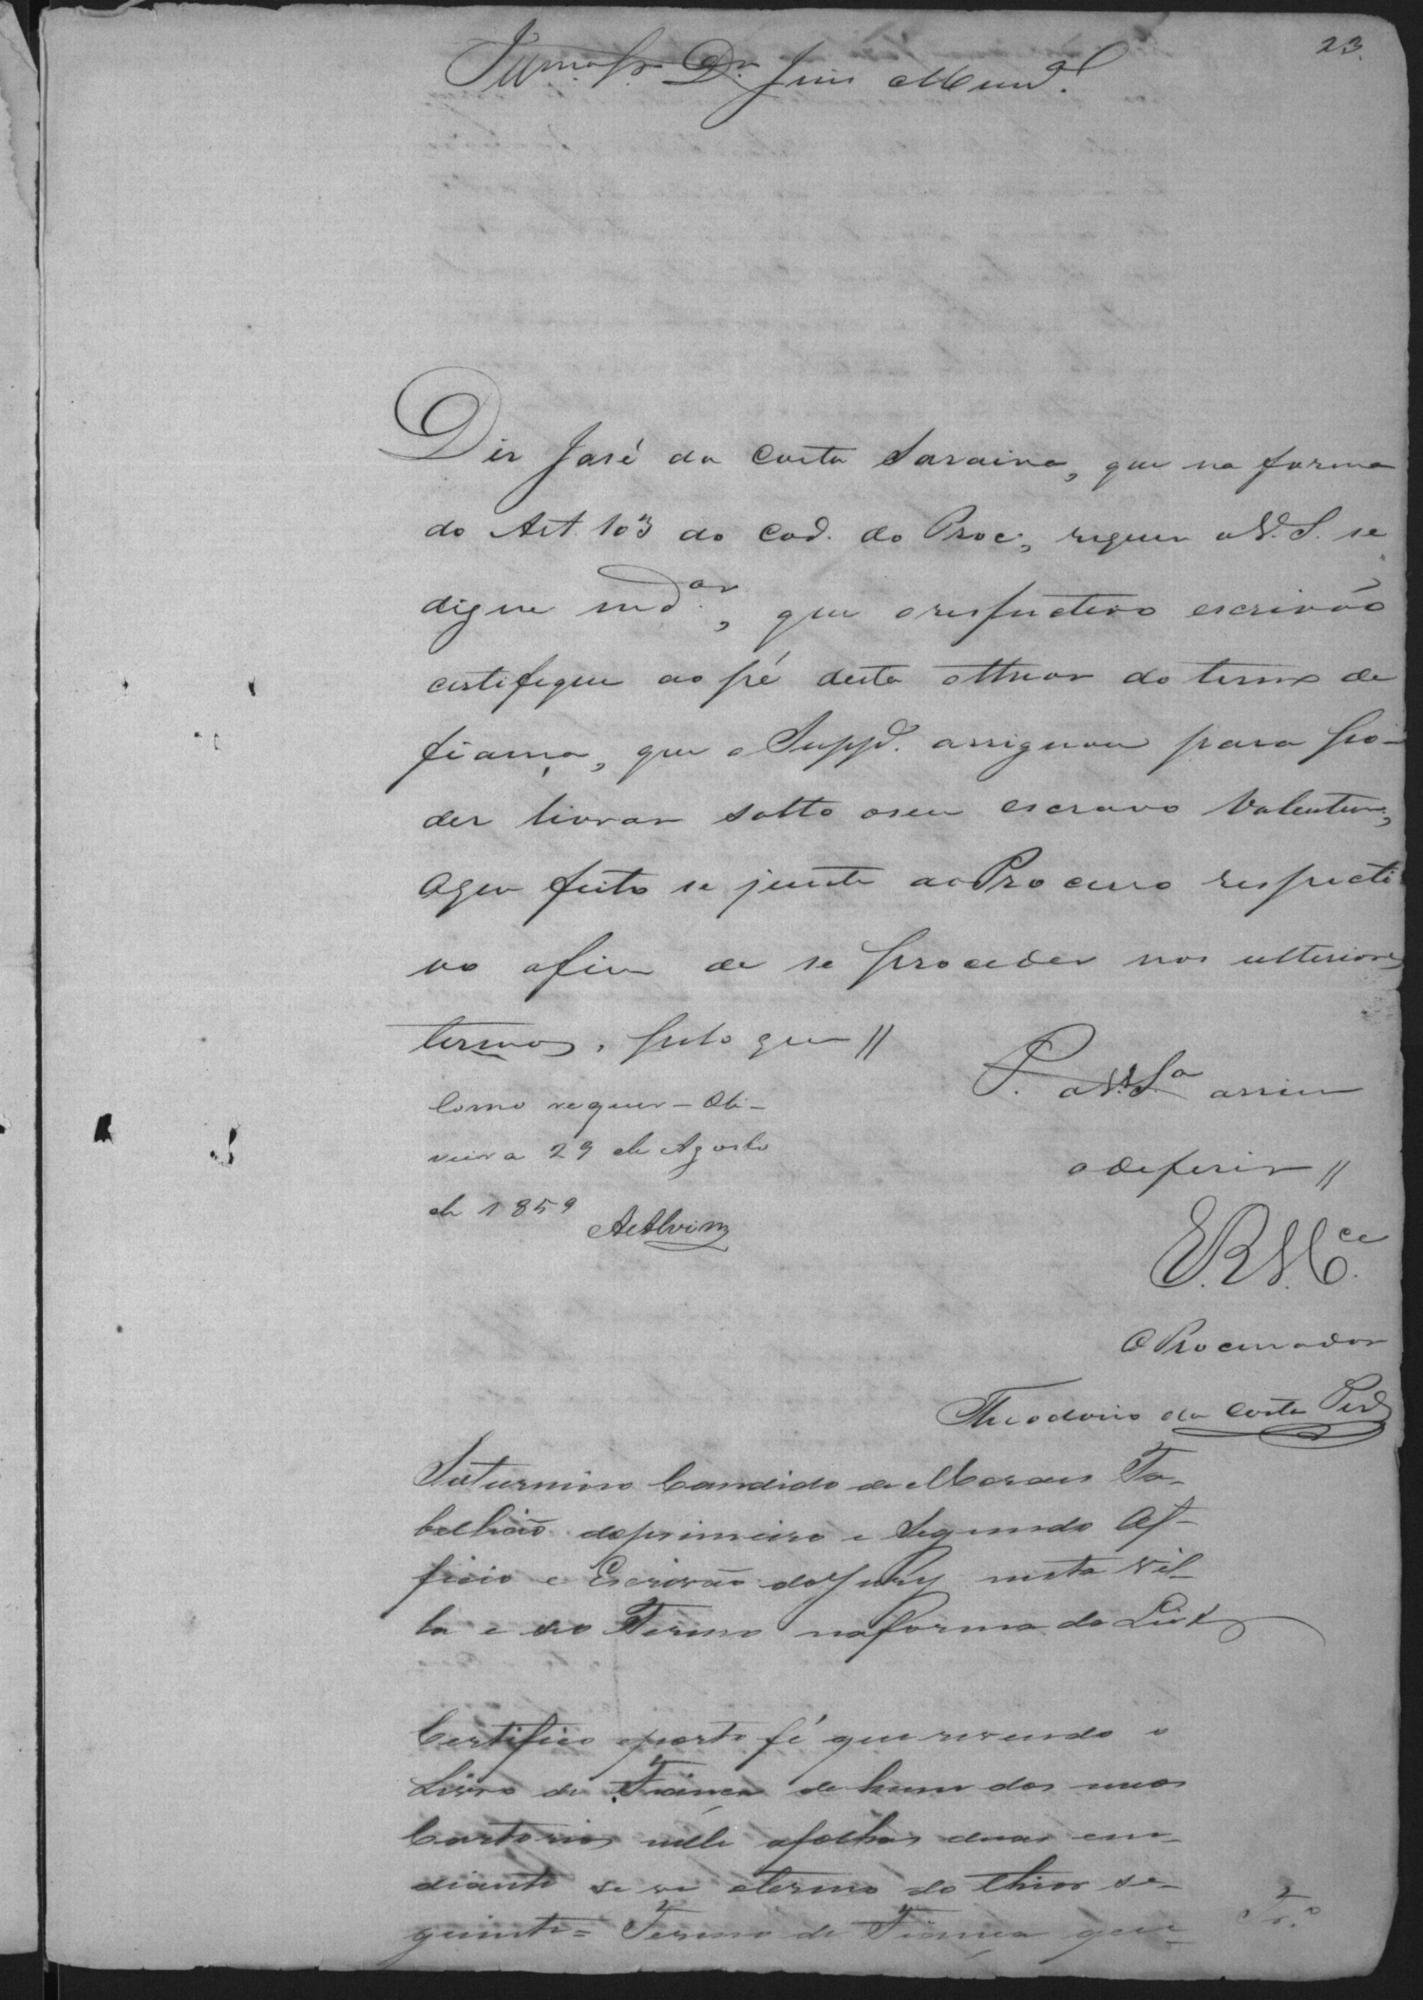 23
Illmo Sr. Dr. Juis Munal.
Diz José da Costa Saraiva, que na forma
do Art. 103 do Cod. do Proc., requer a V. S. se
digne mdar., que o respectivo escrivão
certifique ao pé desta o theor do termo de
fiança, que o Suppe. assignou para po-
der livrar solto o seu escravo Valentim,
o que feito se junte ao Processo respecti
vo afim de se proceder nos ulteriores
termos, pelo que //
P. a V. Sa assim
o deferir //
E. R. Mce
O Procurador
Theodorio da Costa
Como requer - Oli-
veira 29 de Agosto
de 1859
AeAlvim
Saturnino Candido de Moraes Ta-
bellião do primeiro e Segundo Of-
ficio e Escrivão do Jury nesta Vil-
la e seo Termo na forma da Lei &
Certifico e porto fé que revendo o
Livro de Fiança de hum dos meos
Cartorios nelle a folhas duas em-
diante se ve o termo do theor se-
guinte = Termo de Fiança que-
Tr.º